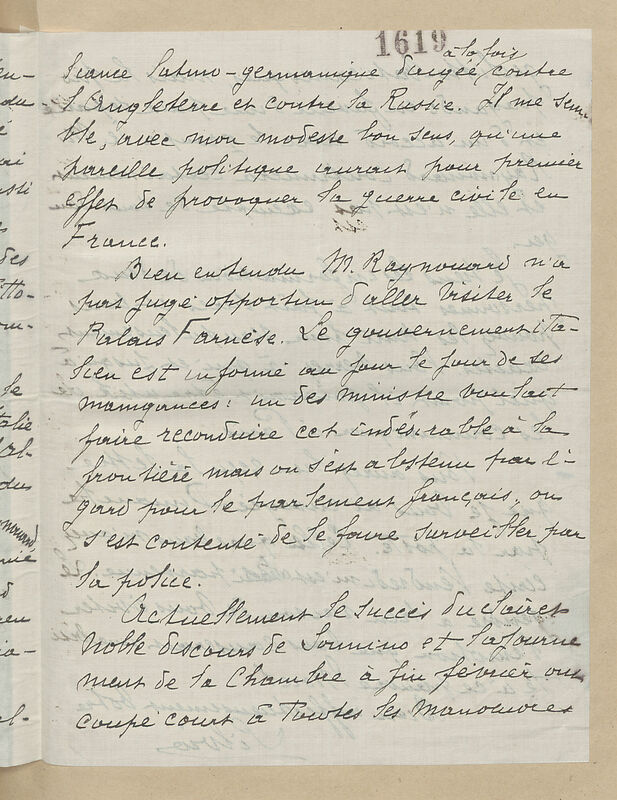 1619
à la fois
liance latino-germanique dirigée contre
l'Angleterre et contre la Russie. Il me sem-
ble, avec mon modeste bon sens, qu'une
pareille politique aurait pour premier
effet de provoquer la guerre civile en
France.
Bien entendu M. Raynouard n'a
pas jugé opportun d'aller visiter le
Palais Farnèse. Le gouvernement ita-
lien est informé au jour le jour de ses
manigances: un des ministre voulait
faire reconduire cet indésirable à la
frontière mais on s'est abstenu par é-
gard pour le parlement français, on
s'est contenté de le faire surveiller par
la police.
Actuellement le succès du clair et
noble discours de Sonnino et l'ajourne
ment de la Chambre à fin février ont
coupé court à toutes les manoeuvres